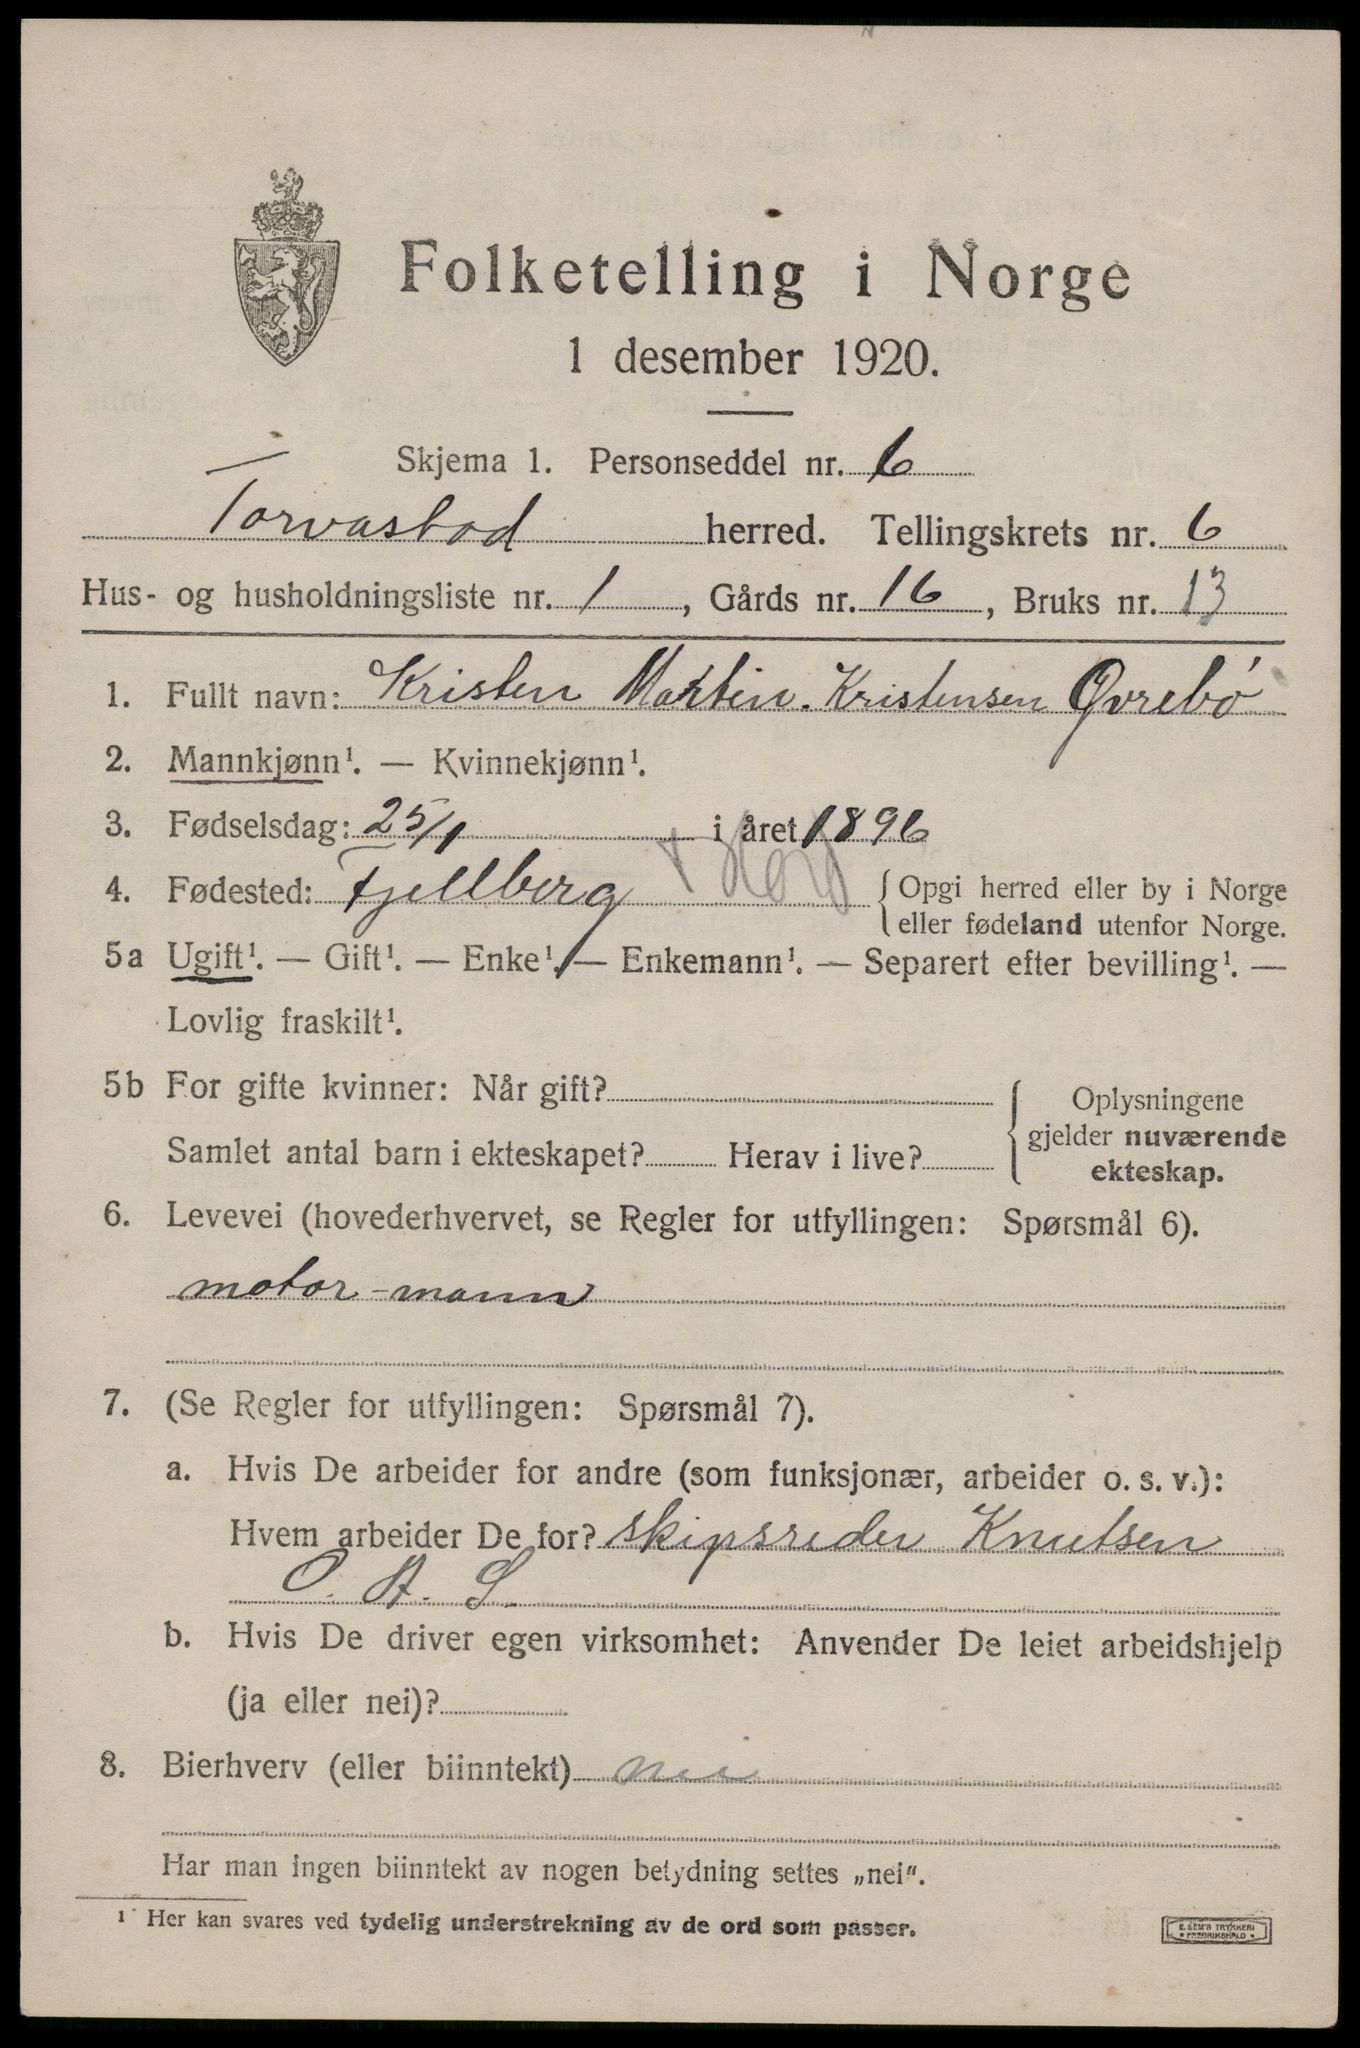 Folketelling i Norge
1 desember 1920.
Skjema 1. Personseddel nr. 6
Torvastad herred. Tellingskrets nr. 6
Hus- og husholdningsliste nr. 1, Gårds nr. 16, Bruks nr. 13
1. Fullt navn: Kristen Martin. Kristensen Øvrebö
2. Mannkjønn¹. — Kvinnekjønn¹.
3. Fødselsdag: 25/1 i året 1896
4. Fødested: Fjellberg + Hord { Opgi herred eller by i Norge
eller fødeland utenfor Norge.
5a Ugift¹. — Gift¹. — Enke¹. — Enkemann¹. — Separert efter bevilling¹. —
Lovlig fraskilt¹.
5b For gifte kvinner: Når gift?
Samlet antal barn i ekteskapet? Herav i live?
{ Oplysningene
gjelder nuværende
ekteskap.
6. Levevei (hovederhvervet, se Regler for utfyllingen: Spørsmål 6).
motor-mann
7. (Se Regler for utfyllingen: Spørsmål 7).
a. Hvis De arbeider for andre (som funksjonær, arbeider o. s. v.):
Hvem arbeider De for? skipsreder Knutsen
O. A. S.
b. Hvis De driver egen virksomhet: Anvender De leiet arbeidshjelp
(ja eller nei)?
8. Bierhverv (eller biinntekt) nei
Har man ingen biinntekt av nogen betydning settes „nei".
¹ Her kan svares ved tydelig understrekning av de ord som passer.
E. SEM'S TRYKKERI
FREDRIKSHALD